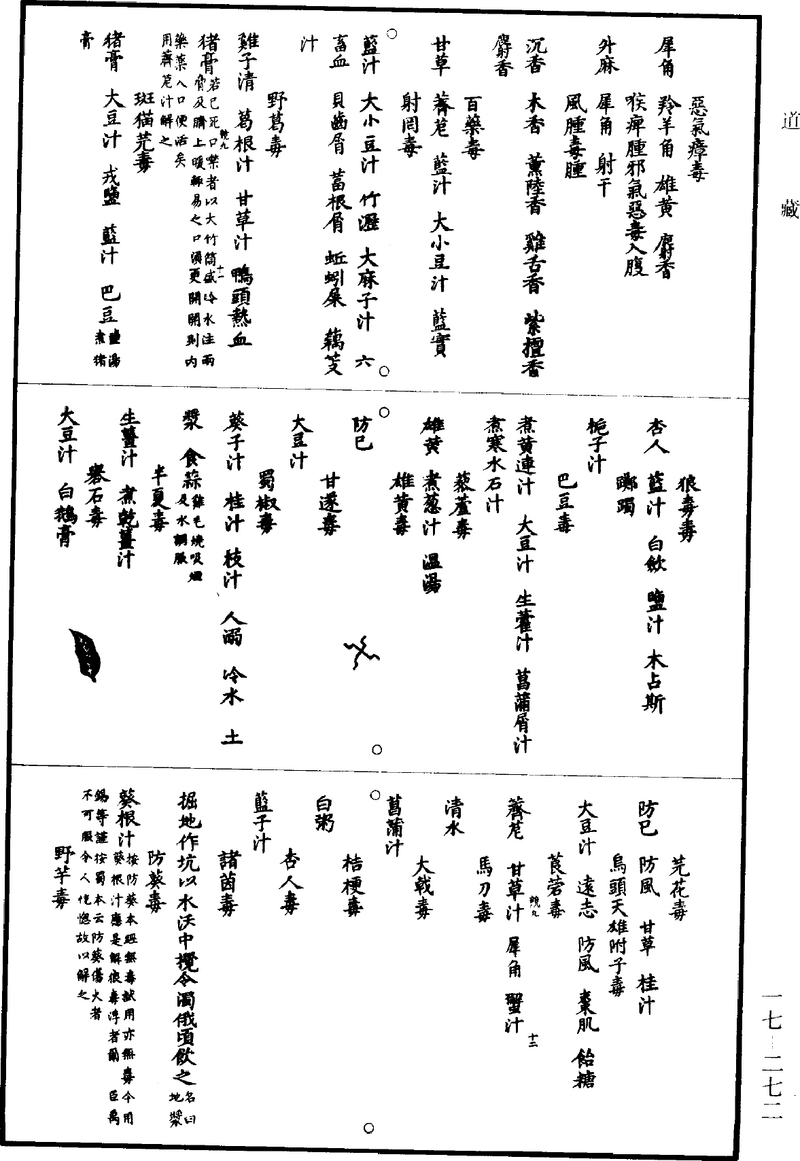 道藏
惡氣瘴毒
犀角 羚羊角 雄黃 麝香
喉痺腫邪氣惡毒入腹
外麻 犀角 射干
風腫毒腫
沉香 木香 薰陸香 雞舌香 紫檀香
麝香
百藥毒
甘草 薺苨 藍汁 大小豆汁 藍實
射罔毒
藍汁 大小豆汁 竹瀝 大麻子汁 六
畜血 貝齒屑 葍根屑 蚯蚓屎 藕芰
汁
野葛毒
雞子清 葛根汁 甘草汁 鴨頭熱血
猪膏若已死口噤者以大竹筒盛冷水注兩
脅及臍上暖輒易之口須更開開則內
藥藥入口便活矣
用薺苨汁解之
斑猫芫毒
猪膏 大豆汁 戎鹽 藍汁 巴豆鹽湯
煮猪
膏
狼毒毒
杏人 藍汁 白斂 鹽汁 木占斯
躑躅
梔子汁
巴豆毒
煮黃連汁 大豆汁 生藿汁 菖蒲屑汁
煮寒水石汁
藜蘆毒
雄黃 煮葱汁 溫湯
雄黃毒
防巳
甘遂毒
大豆汁
蜀椒毒
葵子汁 桂汁 豉汁 人溺 冷水 土
漿 食蒜雞毛燒吸烟
及水調服
半夏毒
生薑汁 煮乾薑汁
礜石毒
大豆汁 白鵝膏
芫花毒
防巳 防風 甘草 桂汁
烏頭天雄附子毒
大豆汁 遠志 防風 棗肌 飴糖
莨菪毒
薺苨 甘草汁 犀角 蟹汁
馬刀毒
清水
大戟毒
菖蒲汁
桔梗毒
白粥
杏人毒
藍子汁
諸菌毒
掘地作坑以水沃中攪令濁俄頃飲之名曰
地漿
防葵毒
葵根汁按防葵本經無毒試用亦無毒今用
葵根汁應是解狼毒浮者爾 臣禹
錫等謹按蜀本云防葵傷火者
不可服令人恍惚故以解之
野芋毒
一七—二七二